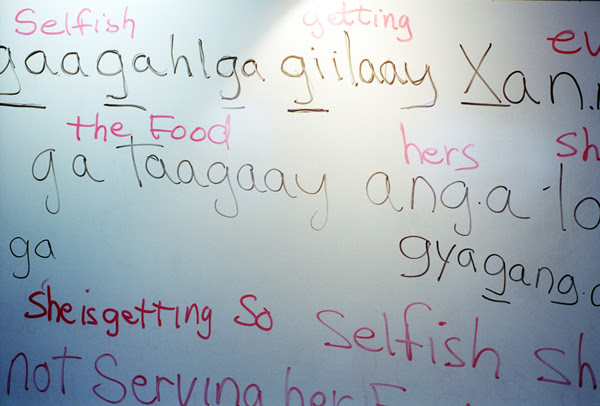 Selfish getting ev
gaagahlga giilaay Xan.n
the Food hers sh
ga taagaay ang.a 'la
ga gyagang.
She is getting So Selfish Sh
not Serving her F